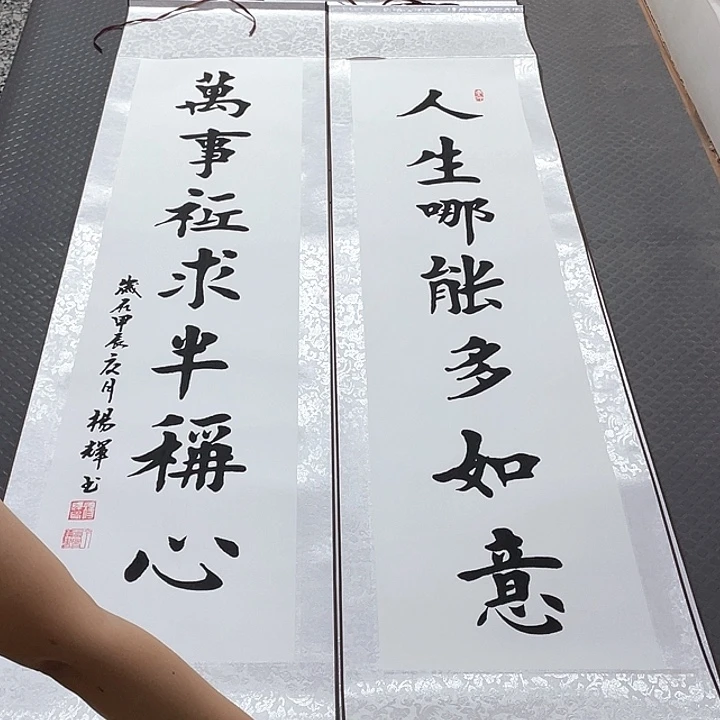 人生哪能多如意
萬事祗求半稱心
歲在甲辰夏月楊輝书